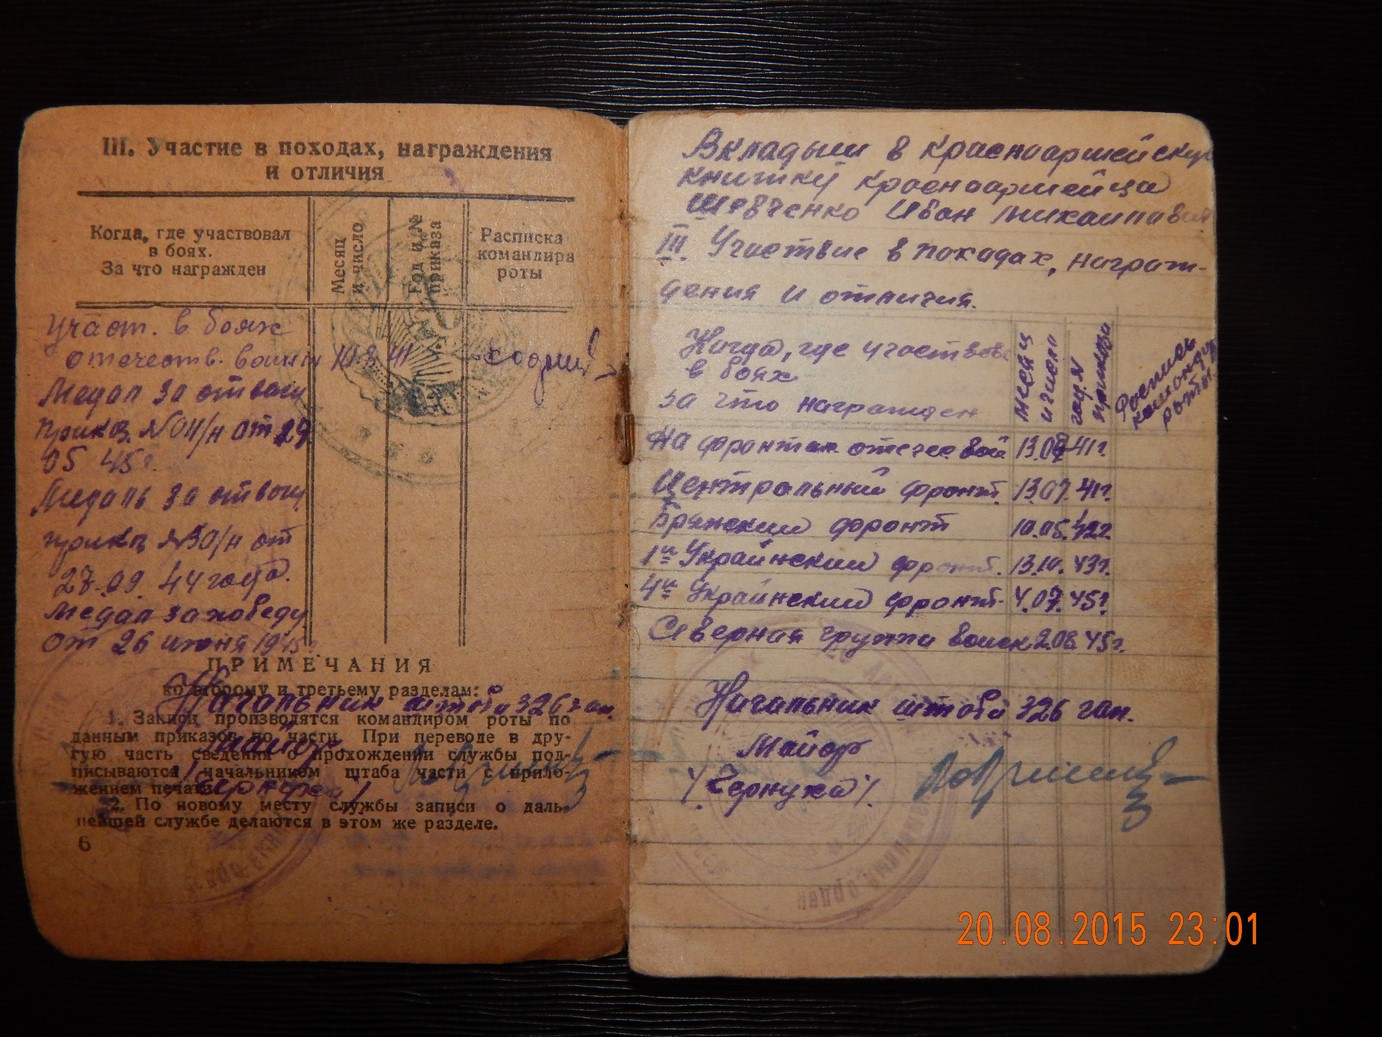 III. Участие в походах, награждения
и отличия
Когда, где участвовал
в боях.
За что награжден
Месяц
и число
Год и №
приказа
Расписка
командира
роты
Участ. в боях
отечеств. войны
41
Медал за отвагу
приказ. №011/н от 29
05 45г.
Медаль за отвагу
приказ №50/н от
27.09. 44 года.
Медал за победу
от 26 июня 1945г
ПРИМЕЧАНИЯ
ко второму и третьему разделам:
Начальник штаба 326 гап.
1. Записи производятся командиром роты по
данным приказов по части. При переводе в дру-
майор
гую часть сведения о прохождении службы под-
писываются начальником штаба части с прило-
жением печати.
/Чернуха/
2. По новому месту службы записи о даль-
нейшей службе делаются в этом же разделе.
6
Вкладыш в красноармейскую
книжку красноармейца
Шевченко Иван Михайлович
III. Участвие в походах, награж-
дения и отличия.
Когда, где участвова
в боях
за что награжден
месяц
и число
год и №
приказа
Роспись
командира
роты.
На фронтах отечес вой 13.07 41г.
Центральный фронт. 13.07. 41г.
Брянский фронт 10.05. 42г.
1й Украинский фронт. 13.10. 43г.
4й Украинский фронт. 4.07. 45г
Северная группа войск 2.08.45г.
Начальник штаба 326 гап.
Майор
/Чернуха/.
20.08.2015 23:01